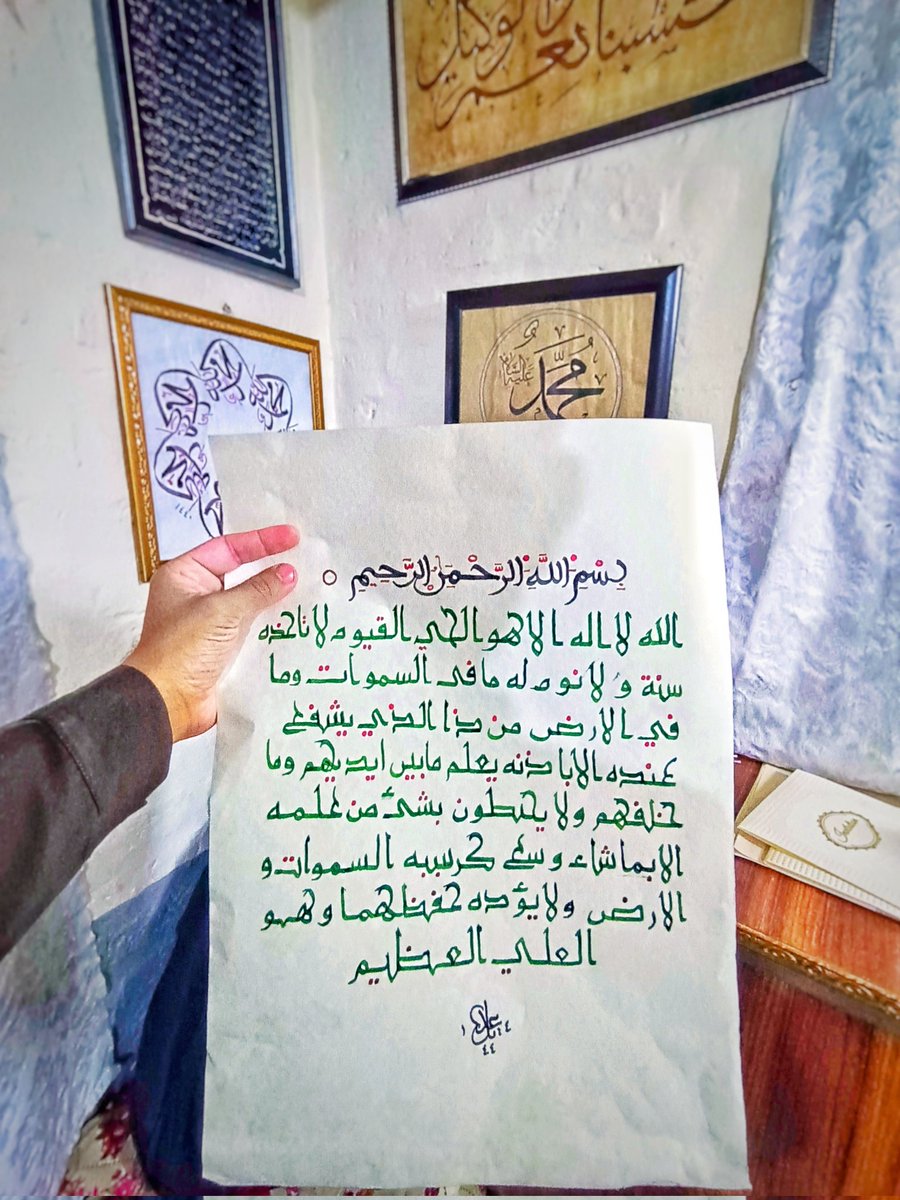 حسبنا ونعم الوكيل
محمد
عليه السلام
بِسْمِ اللَّهِ الرَّحْمَنِ الرَّحِيمِ
الله لا اله الا هو الحي القيوم لا تاخذه
سنة و لا نوم له ما في السموات وما
في الارض من ذا الذي يشفع
عنده الا باذنه يعلم ما بين ايديهم وما
خلفهم ولا يحيطون بشئ من علمه
الا بما شاء وسع كرسيه السموات و
الارض ولا يؤده حفظهما وهو
العلي العظيم